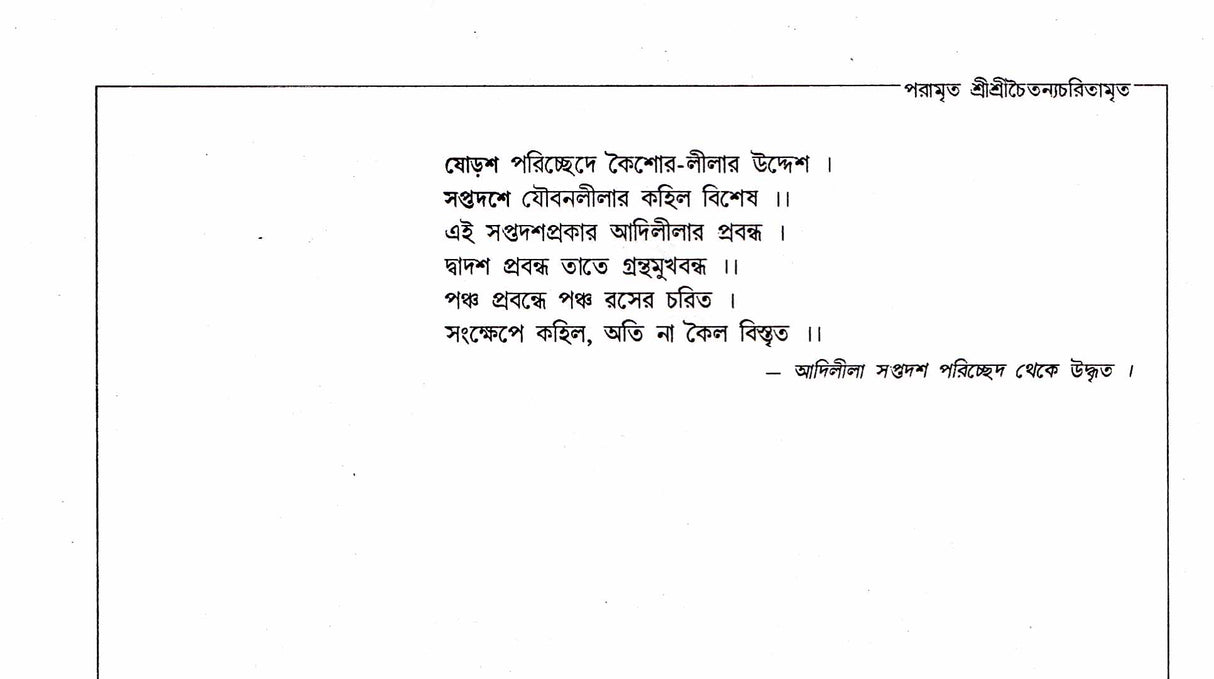 পরামৃত শ্রীশ্রীচৈতন্যচরিতামৃত
ষোড়শ পরিচ্ছেদে কৈশোর-লীলার উদ্দেশ ।
সপ্তদশে যৌবনলীলার কহিল বিশেষ ।।
এই সপ্তদশপ্রকার আদিলীলার প্রবন্ধ ।
দ্বাদশ প্রবন্ধ তাতে গ্রন্থমুখবন্ধ ।।
পঞ্চ প্রবন্ধে পঞ্চ রসের চরিত ।
সংক্ষেপে কহিল, অতি না কৈল বিস্তৃত ।।
– আদিলীলা সপ্তদশ পরিচ্ছেদ থেকে উদ্ধৃত ।